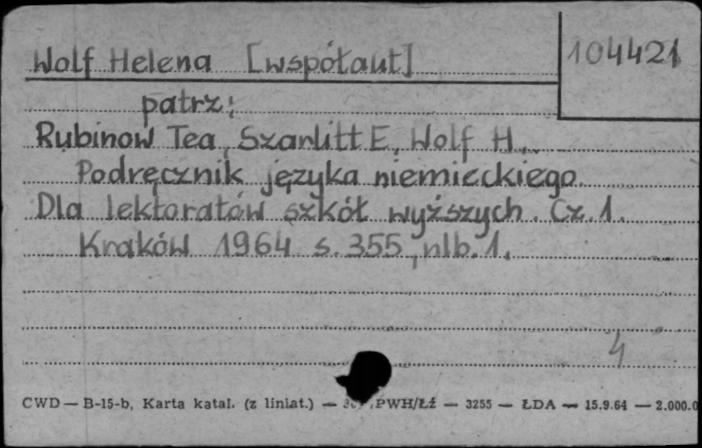 Wolf Helena [współaut] 104421
patrz:
Rubinow Tea, Szarlitt E, Wolf H.,
Podręcznik języka niemieckiego.
Dla lektoratów szkół wyższych. Cz. 1.
Kraków 1964 s. 355, nlb. 1.
4
CWD — B-15-b, Karta katal. (z liniat.) — PWH/Łź — 3255 — ŁDA — 15.9.64 — 2.000.0